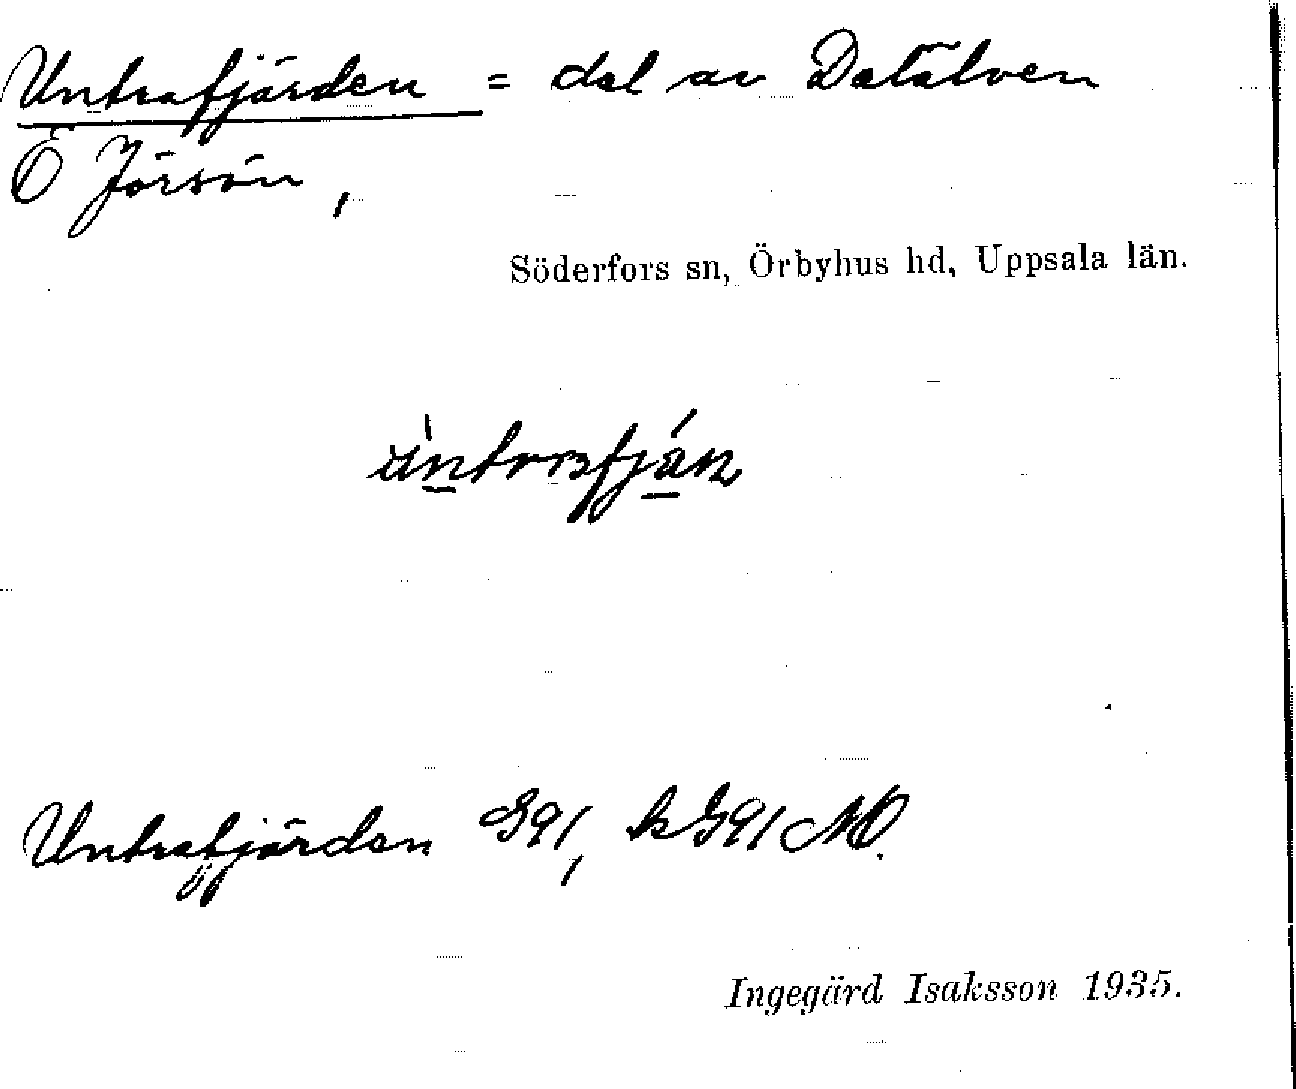 Untrafjärden = del av Dalälven
Ö Jörsön,
Söderfors sn, Örbyhus hd, Uppsala län.
Untrafjärden G91, k G91 NO.
Ingegärd Isaksson 1935.